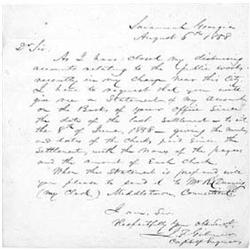 Savannah Georgia
August 6th 1858
Dr Sir.
As I have closed my disbursing
accounts relating to the Public works
recently in my charge near this city
I have to request that you will
give me a Statement of my account
on the Books of your office since
the date of the last settlement - to wit
the 8th of June, 1858 - giving the number
and dates of the checks paid since the
settlement, with the names of the payees
and the amount of each check
When this Statement is prepared will
you please to send it to Mr R
(my Clerk) Middletown Connecticut.
I am, Sir
Respectfully Your obt Servt
J. F. Gilmer
Capt of Engineers